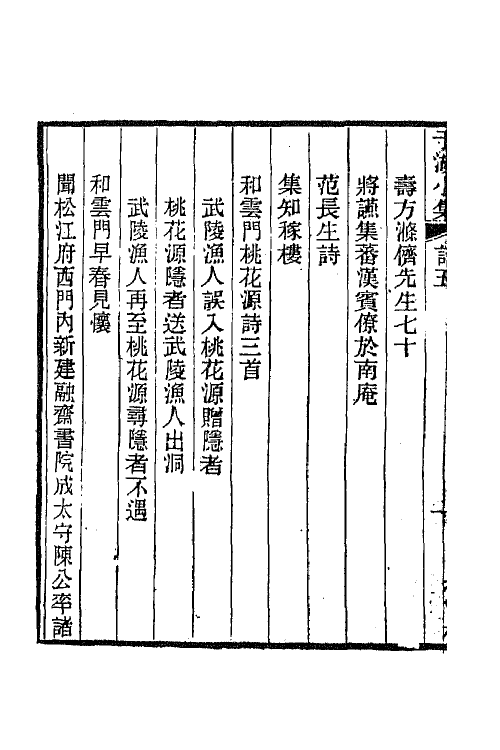 壽方滌儕先生七十
將讌集蕃漢賓僚於南庵
范長生詩
集知稼樓
和雲門桃花源詩三首
武陵漁人誤入桃花源贈隱者
桃花源隱者送武陵漁人出洞
武陵漁人再至桃花源尋隱者不遇
和雲門早春見懷
聞松江府西門內新建融齋書院成太守陳公率諸